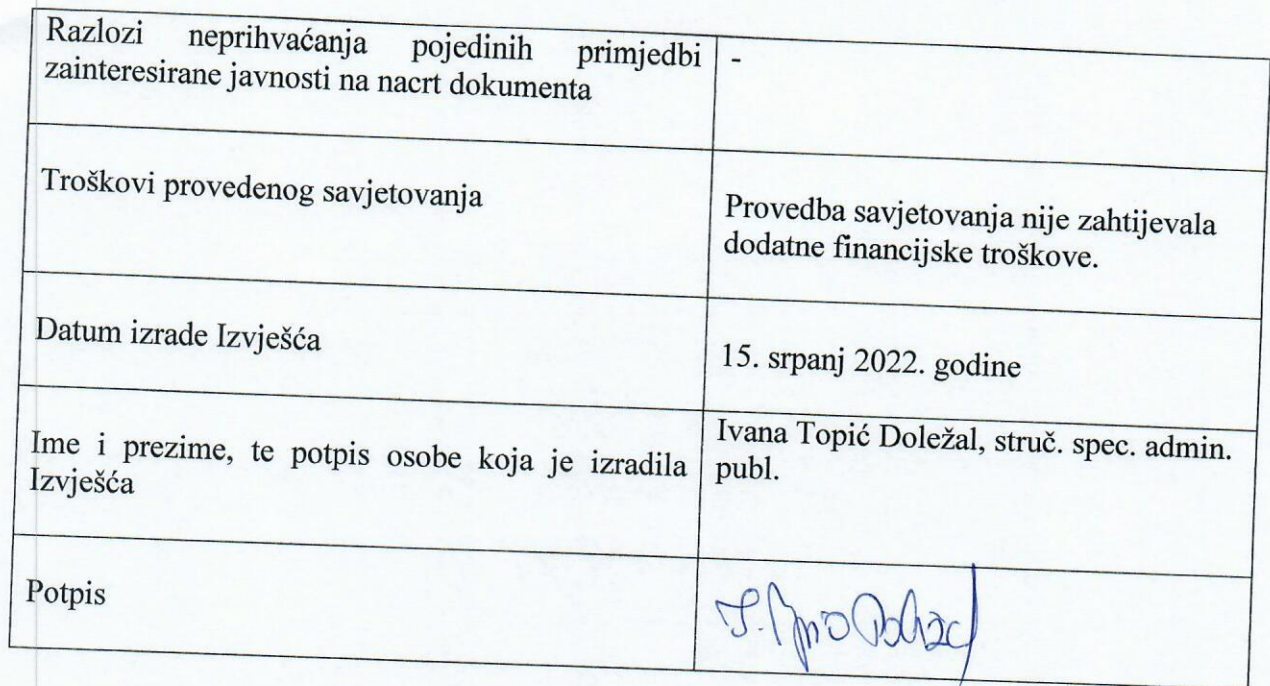 Razlozi neprihvaćanja pojedinih primjedbi
zainteresirane javnosti na nacrt dokumenta
-
Troškovi provedenog savjetovanja
Provedba savjetovanja nije zahtijevala
dodatne financijske troškove.
Datum izrade Izvješća
15. srpanj 2022. godine
Ime i prezime, te potpis osobe koja je izradila
Izvješća
Ivana Topić Doležal, struč. spec. admin.
publ.
Potpis